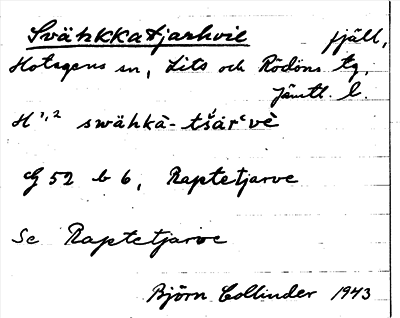 Svähkkatjarhvie fjäll,
Hotagens sn, Lits och Rödöns tg,
Jämtl. l.
H 1,2 swähkà-tšár‘vè
G 52 b 6, Raptetjarve
Se Raptetjarve
Björn Collinder 1943